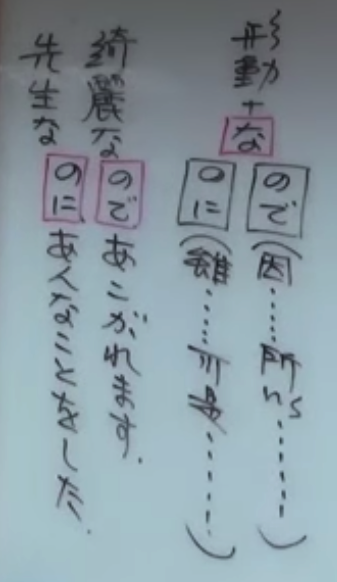 形動+な
ので(因……所以………)
のに(雖……可是………)
綺麗なのであこがれます.
先生なのにあんなことをした.